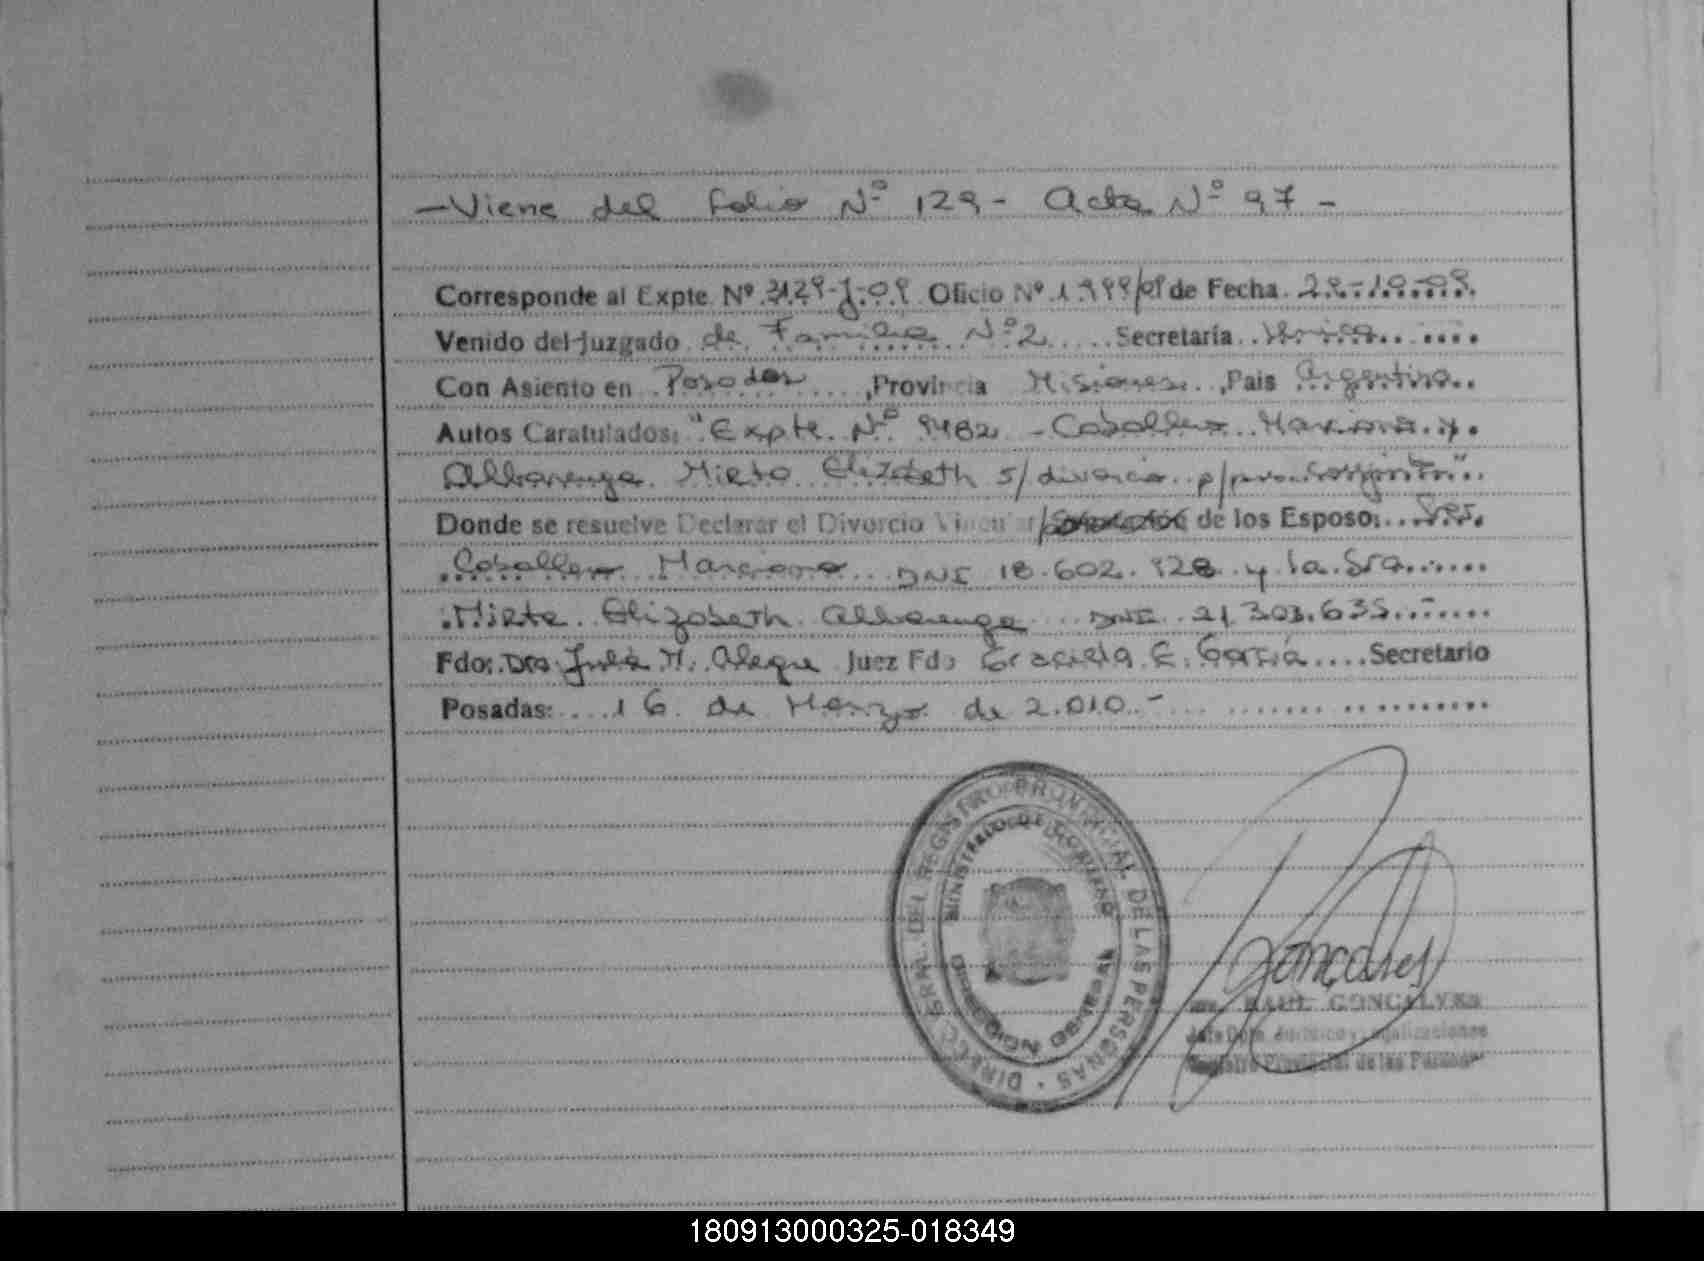 -Viene del folio Nº 129- Acta Nº 97-
Corresponde al Expte Nº 3129-J-09 Oficio Nº 1.999/09 de Fecha 29-10-09
Venido del Juzgado de Familia Nº 2 Secretaría Única
Con Asiento en Posadas, Provincia Misiones, Pais Argentina
Autos Caratulados: "Expte. Nº 9482 - Caballero Marciano y
Albarenga Mirta Elizabeth s/divorcio p/pres. conjunta"
Donde se resuelve Declarar el Divorcio Vincular/ de los Esposo: Sr.
Caballero Marciano DNI 18.602.928 y la Sra
Mirta Elizabeth Albarenga DNI 21.303.635.-
Fdo: Dra Julia M. Alegre Juez Fdo Graciela E. García Secretario
Posadas: 16 de Marzo de 2.010.-
DIRECC. GRAL. DEL REGISTRO PROVINCIAL DE LAS PERSONAS
MINISTERIO DE GOBIERNO
DIRECCIÓN GENERAL
Goncalves
RAUL GONCALVES
Registro Provincial de las Personas
180913000325-018349